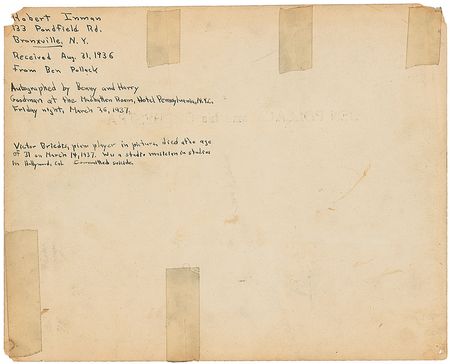 Robert Inman
133 Pondfield Rd.
Bronxville, N.Y.
Received Aug. 31, 1936
From Ben Pollack
Autographed by Benny and Harry
Goodman at the Manhattan Room, Hotel Pennsylvania, N.Y.C.
Friday night, March 26, 1937.
Victor player in picture, died at the age
of 31 on March 14, 1937. Was a studio musician in studios
in Hollywood, Cal. Committed suicide.